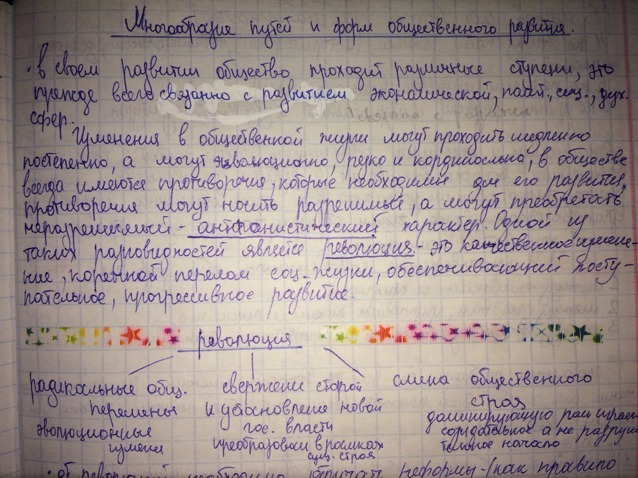 Многообразие путей и форм общественного развития.
• в своем развитии общество проходит различные ступени, это
прежде всего связанно с развитием экономической, полит., соц., дух.
сфер.
Изменения в общественной жизни могут проходить медленно
постепенно, а могут революционно, резко и кардинально, в обществе
всегда имеются противоречия, которые необходимы для его развития,
противоречия могут носить разрешимые, а могут преобретать
неразрешемый - антогонистический характер. Одной из
таких разновидностей является революция - это качественное измене-
ние, коренной перелом соц. жизни, обеспечивающий посту-
пательное, прогрессивное развитие.
революция
радикальные общ. свержение старой смена общественного
перемены и установление новой строя
эволюционные гос. власти доминирующую роль играет
измен преобразован в рамках созидательное а не разруши
сущ. строя тельное начало
• от революций необходимо отличать реформы - (как правило